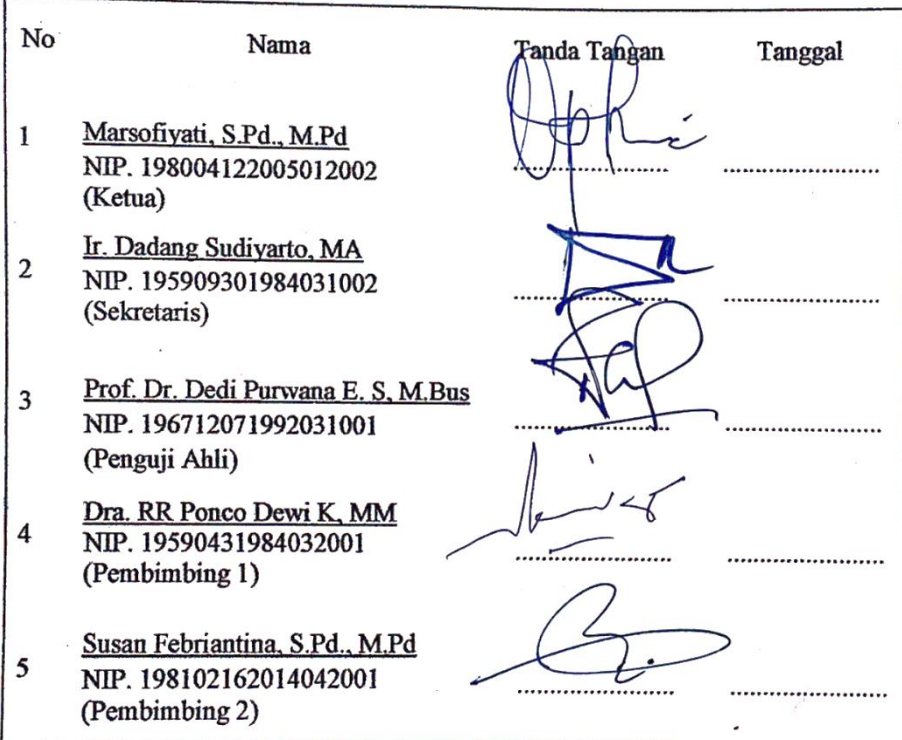 No Nama Tanda Tangan Tanggal
1 Marsofiyati, S.Pd., M.Pd
NIP. 198004122005012002
(Ketua)
2 Ir. Dadang Sudiyarto, MA
NIP. 195909301984031002
(Sekretaris)
3 Prof. Dr. Dedi Purwana E. S, M.Bus
NIP. 196712071992031001
(Penguji Ahli)
4 Dra. RR Ponco Dewi K, MM
NIP. 19590431984032001
(Pembimbing 1)
5 Susan Febriantina, S.Pd., M.Pd
NIP. 198102162014042001
(Pembimbing 2)